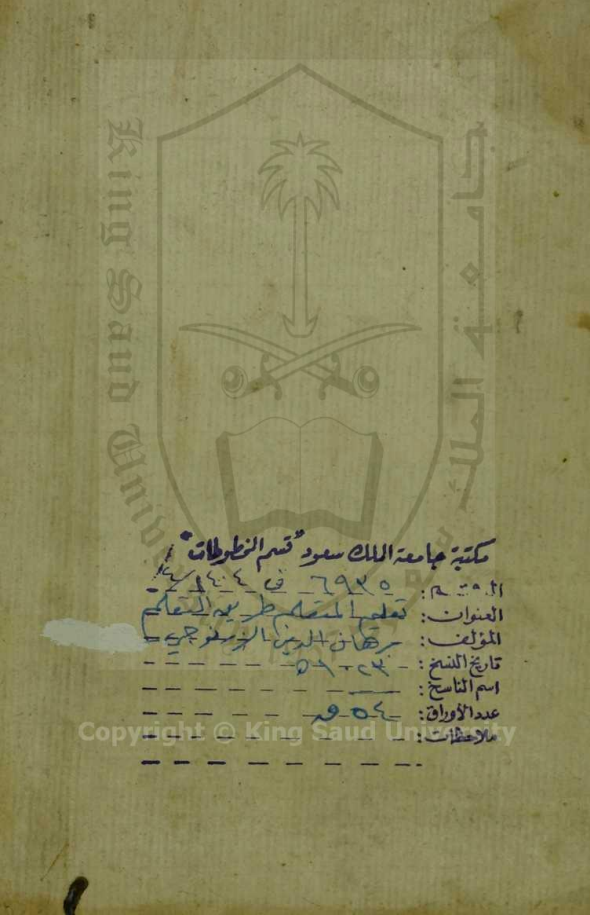 King Saud University
جامعة الملك سعود
مكتبة جامعة الملك سعود "قسم المخطوطات"
الرقم: ٦٩٣٥ ف ١٤٠٤/
العنوان: تعليم المتعلم طريق التعلم
المؤلف: برهان الدين الزرنوجي
تاريخ النسخ:
اسم الناسخ:
عدد الأوراق: ٥٤ ق
ملاحظات:
Copyright © King Saud University